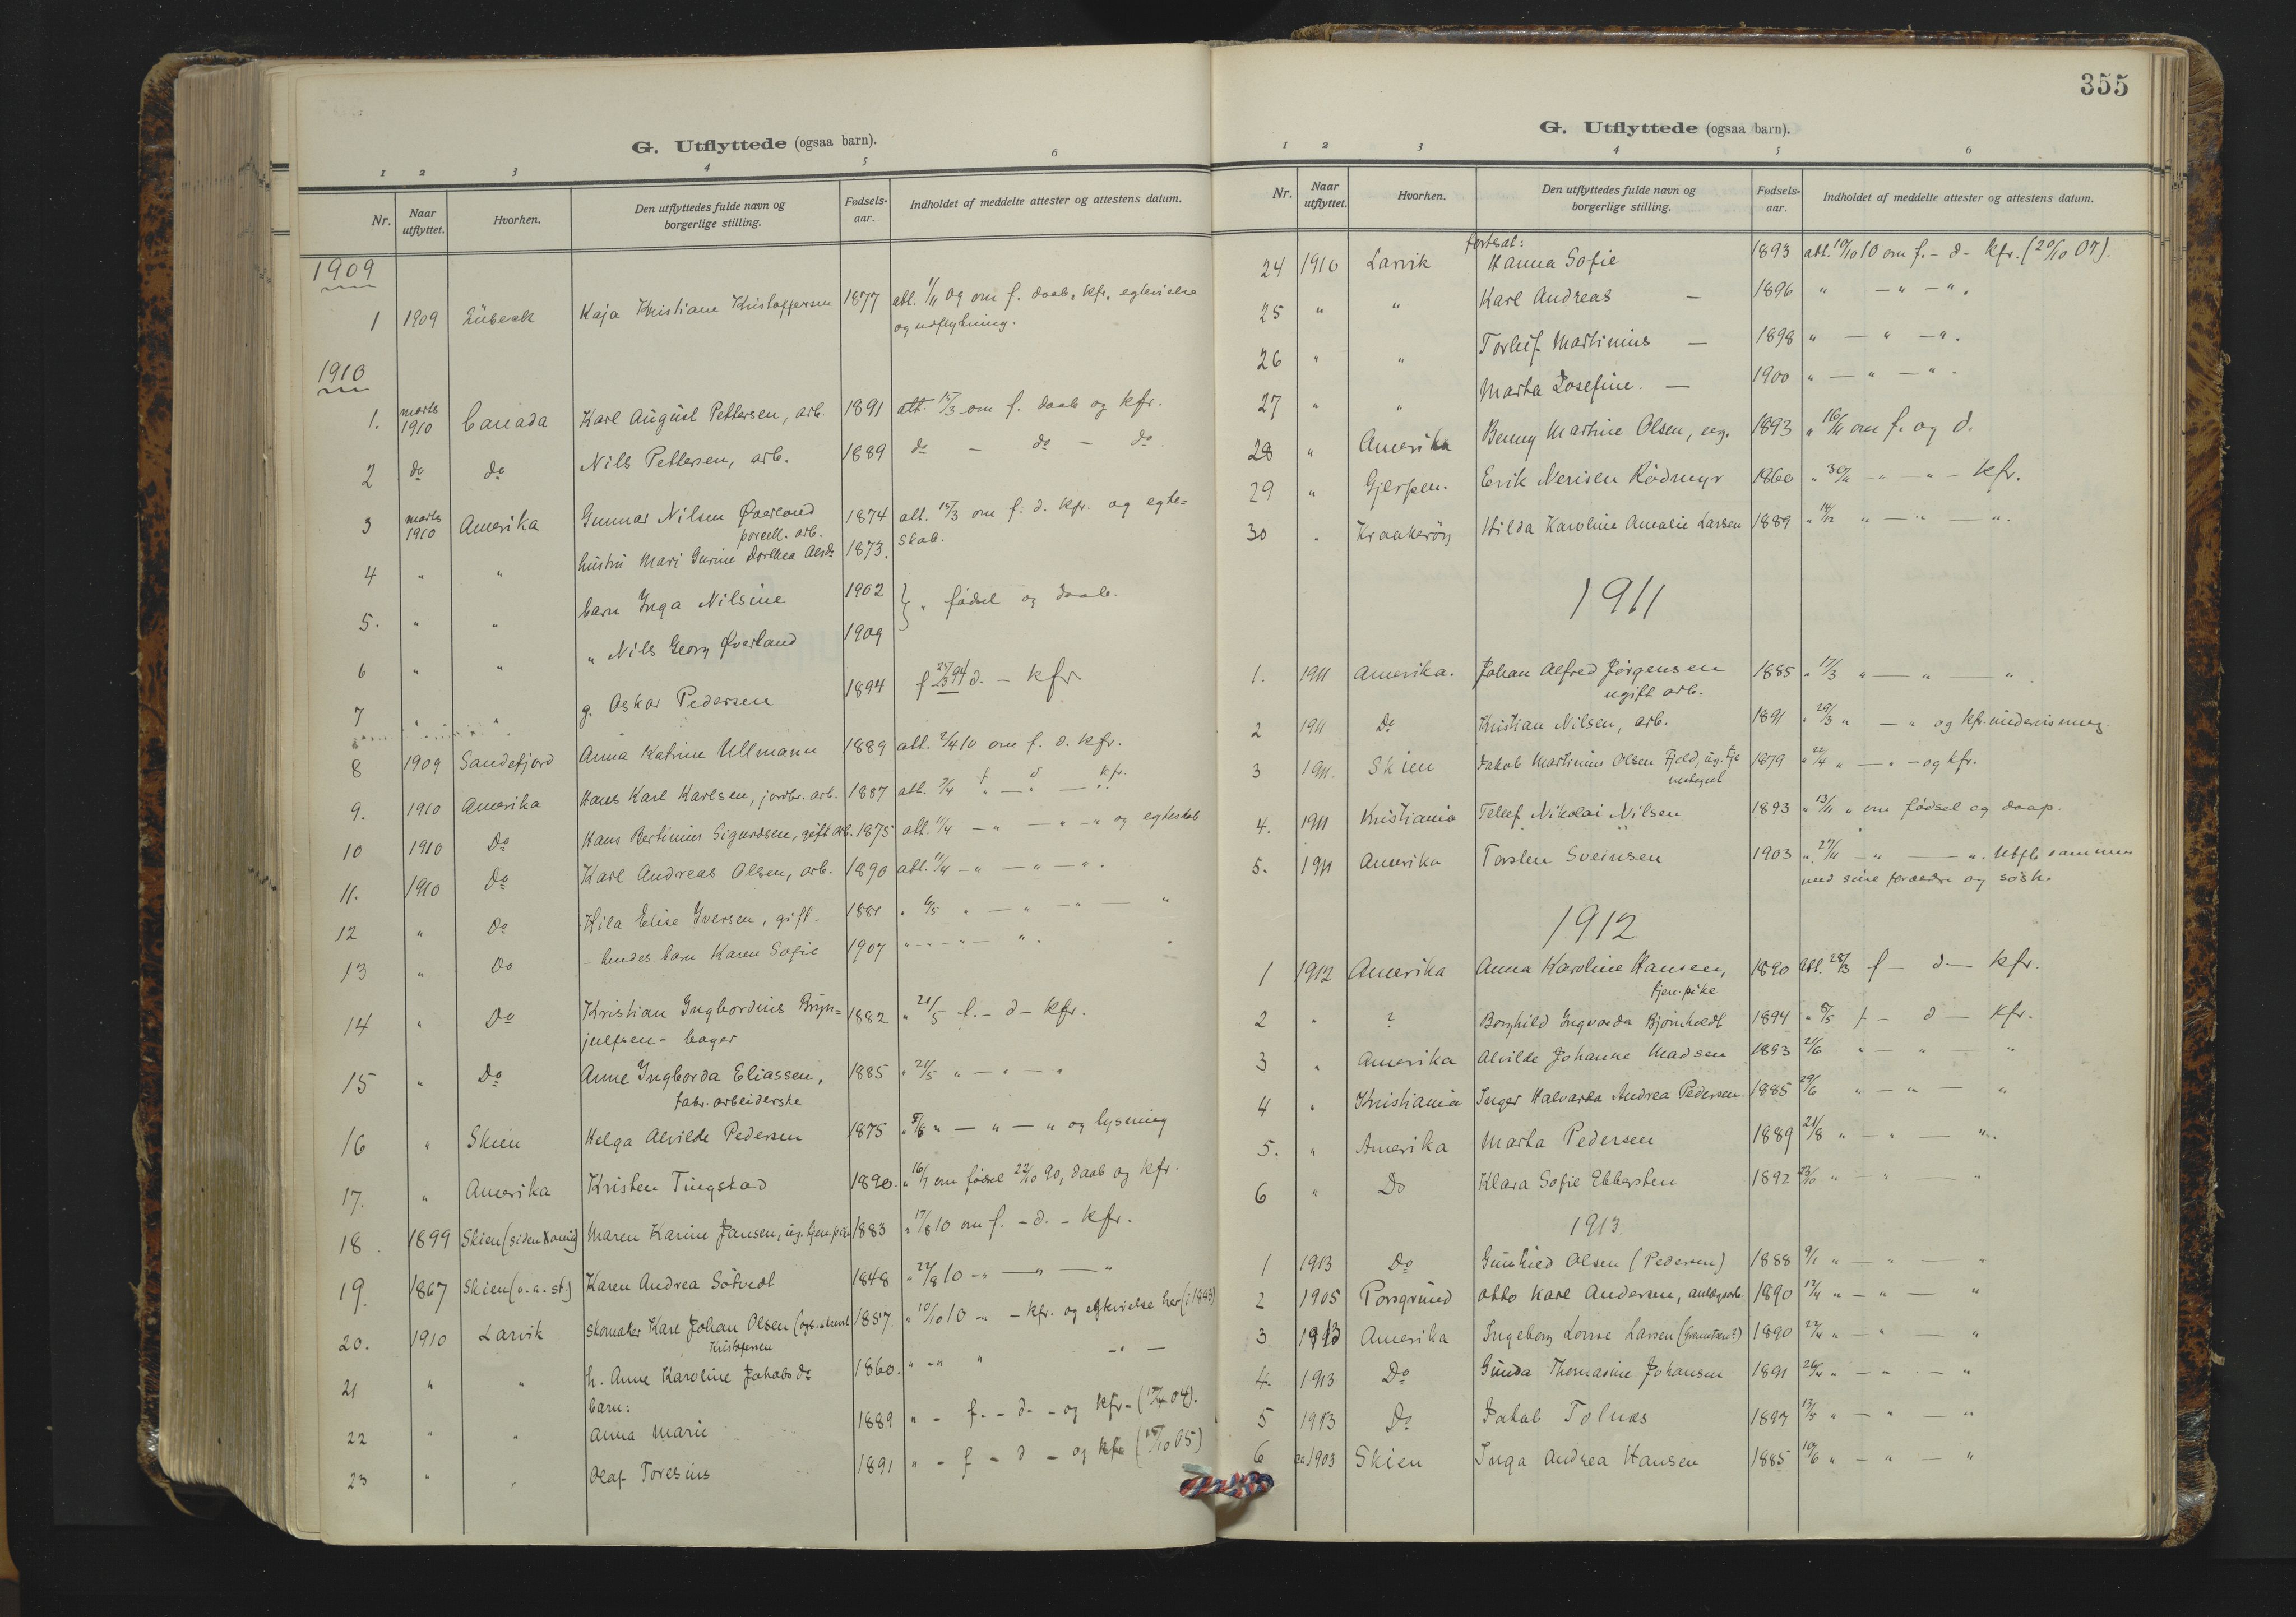 G. Utflyttede (ogsaa barn).
1 2 3 4 5 6
Nr. Naar utflyttet. Hvorhen. Den utflyttedes fulde navn og borgerlige stilling. Fødsels-aar. Indholdet af meddelte attester og attestens datum.
1909
1 1909 Lübeck Kaja Kristiane Kristoffersen 1877 att. 1/11 09 om f. daab, kfr., egtevielse
og udflytning.
1910
1. marts 1910 Canada Karl August Pettersen, arb. 1891 att. 15/3 om f. daab og kfr.
2 do do Nils Pettersen, arb. 1889 do - do - do.
3 marts 1910 Amerika Gunnar Nilsen Øverland 1874 att. 15/3 om f. d. kfr. og egte=
porcell. arb. skab.
4 " " hustru Mari Gurine Dorthea 1873.
5. " " barn Inga Nilsine 1902 } " fødsel og daab.
6 " " " Nils Georg Øverland 1909
7 " " g. Oskar Pedersen 1894 f 94 d. - kfr
8 1909 Sandefjord Anna Katrine Ullmann 1889 att. 2/4 10 om f. d. kfr.
9. 1910 Amerika Hans Karl Karlsen, jordbr. arb. 1887 att. 7/4 f. - d - kfr.
10 1910 Do Hans Bertinius Sigurdsen, gift arb. 1875 att. 11/4 - " - " - " og egteskab
11. 1910 Do Karl Andreas Olsen, arb. 1890 att. 11/4 - " - " - " .
12 " Do Hila Elise Iversen, gift - 1881 " 6/5 " - " - " - "
13 " Do - hendes barn Karen Sofie 1907 " - " - " - " .
14 " Do Kristian Ingbordius Bryn= 1882 " 21/5 f. - d - kfr.
julfsen - bager
15 " Do Anne Ingborda Eliassen, 1885 " 21/5 " - " - "
fabr. arbeiderske
16 " Skien Helga Alvilde Pedersen 1875 " 8/6 " - " - " og lysning
17. " Amerika Kristen Tingstad 1890. " 16/7 om fødsel 22/10 90, daab og kfr.
18. 1899 Skien (siden Kania) Maren Karine Jansen, ug. tjen.pike 1883 " 17/8 10 om f. - d. - kfr.
19. 1867 Skien (o. a. st.) Karen Andrea Søtvedt 1848 " 22/8 10 - " - " - "
20. 1910 Larvik Skomaker Karl Johan Olsen 1857. " 10/10 10 - " - kfr. og egtevielse her (i 1883)
Kristofersen
21 " " h. Anne Karoline Jakobsdr 1860. " - " " - " -
barn:
22 " " Anna Marie 1889 " - f. - d. - og kfr. (04).
23 " " Olaf Toresius 1891 " - f - d - og kfr (15/10 05)
355
G. Utflyttede (ogsaa barn).
1 2 3 4 5 6
Nr. Naar utflyttet. Hvorhen. Den utflyttedes fulde navn og borgerlige stilling. Fødsels-aar. Indholdet af meddelte attester og attestens datum.
fortsat:
24 1910 Larvik Hanna Sofie 1893 att. 10/10 10 om f. - d - kfr. (20/10 07).
25 " " Karl Andreas - 1896 " - " - " .
26 " " Torleif Martinius - 1898 " - " - " .
27 " " Marta Josefine. - 1900 " - " - " .
28 " Amerika Benny Martine Olsen, ug. 1893 " 16/11 om f. og d.
29 " Gjerpen. Erik Nerisen Rødmyr 1860 " 30/11 - " - " - kfr.
30 " Kraakerøy Hilda Karoline Amalie Larsen 1889 " 14/12 " - " - " .
1911
1. 1911 Amerika. Johan Alfred Jørgensen 1885 " 17/3 " - " - " .
ugift arb.
2 1911 Do Kristian Nilsen, arb. 1891 " 29/3 " - " og kfr. undervisning.
3 1911. Skien Jakob Martinius Olsen Fjeld, ug. 1879 " 22/4 " - " - og kfr.
4. 1911 Kristiania Tellef Nikolai Nilsen 1893 " 13/11 " om fødsel og daap.
5. 1911 Amerika Torsten Sveinsen 1903 " 27/11 - " - ". Utfl. sammen
med sine forældre og søsk.
1912
1 1912 Amerika Anna Karoline Hansen, 1890 att. 28/3 f - d - kfr.
tjen. pike
2 " ? Borghild Ingvarda Bjørnholdt 1894 " 8/5 f - d - kfr.
3 " Amerika Alvilde Johanne Madsen 1893 21/6 " - " - "
4 " Kristiania Inger Halvarda Andrea Pedersen 1885 29/6 " - " - "
5. " Amerika Marta Pedersen 1889 21/8 " - " - " .
6 " Do Klara Sofie Ebbersten 1892 23/10 " - " - "
1913
1 1913 Do Gunhild Olsen (Pedersen) 1888 9/1 " - " - "
2 1905 Porsgrund Otto Karl Andersen, anlægsarb. 1890 12/4 " - " - "
3 1913 Amerika Ingeborg Lovise Larsen 1890 22/4 " - " - "
4. 1913 Do Gunda Thomasine Johansen 1891 26/4 " - " - "
5 1913 Do Jakob Tolnæs 1897 13/5 " - " - "
6 ca 1903 Skien Inga Andrea Hansen 1885 10/6 " - " - "